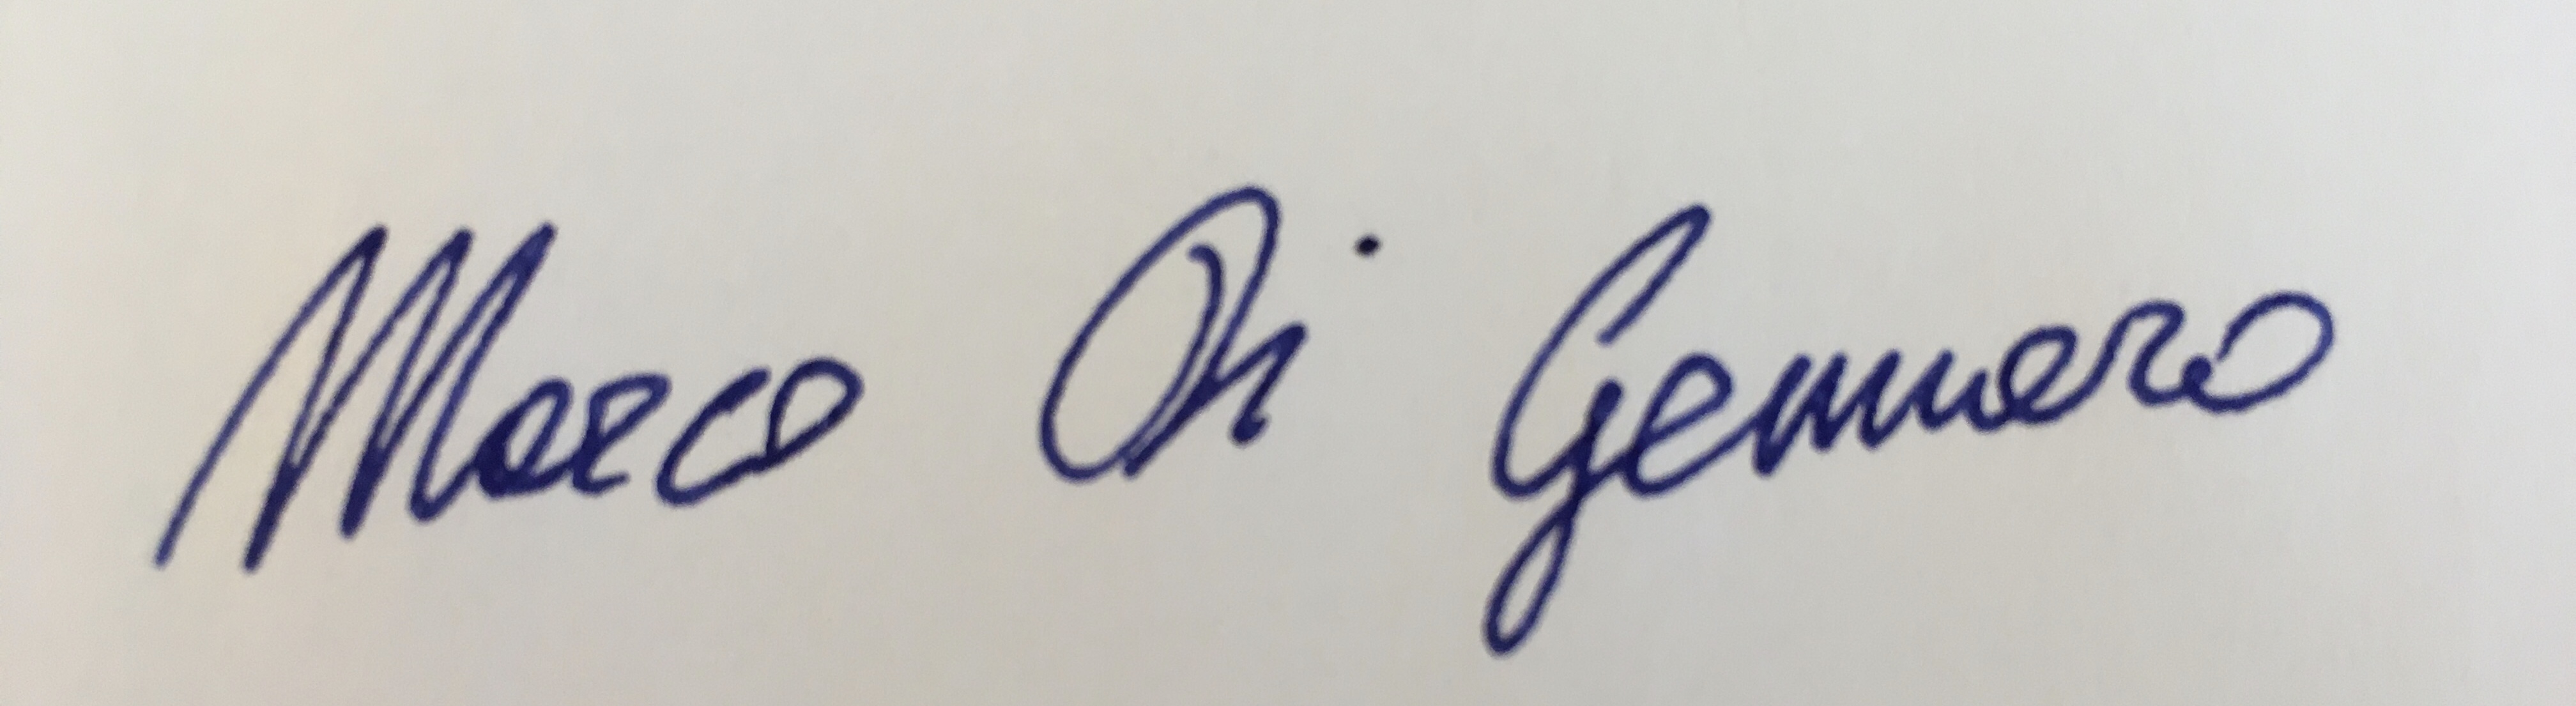 Marco Di Gennaro